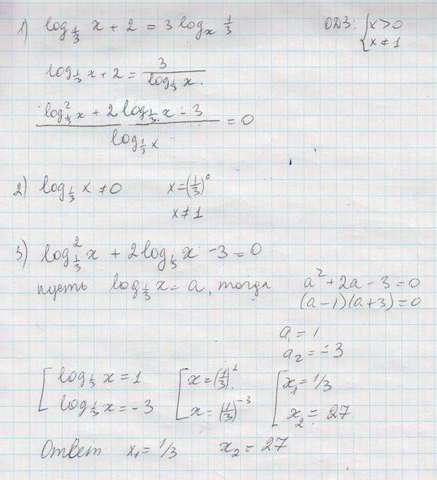 1) log_{1/3} x + 2 = 3 log_x 1/3    ОДЗ: { x > 0
x ≠ 1
log_{1/3} x + 2 = 3 / log_{1/3} x.
(log²_{1/3} x + 2 log_{1/3} x - 3) / log_{1/3} x = 0
2) log_{1/3} x ≠ 0    x = (1/3)^0
x ≠ 1
3) log²_{1/3} x + 2 log_{1/3} x - 3 = 0
пусть log_{1/3} x = a, тогда    a² + 2a - 3 = 0
(a - 1)(a + 3) = 0
a_1 = 1
a_2 = -3
[ log_{1/3} x = 1    [ x = (1/3)^1    [ x_1 = 1/3
log_{1/3} x = -3    x = (1/3)^{-3}    x_2 = 27
Ответ x_1 = 1/3    x_2 = 27